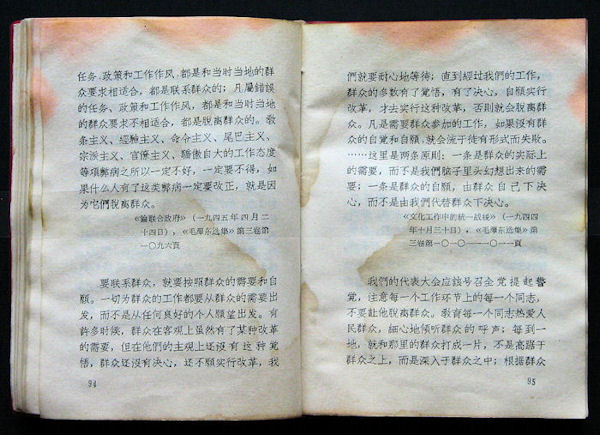 任务、政策和工作作风，都是和当时当地的群
众要求相适合，都是联系群众的；凡屬錯誤
的任务、政策和工作作风，都是和当时当地
的群众要求不相适合，都是脱离群众的。教
条主义、經驗主义、命令主义、尾巴主义、
宗派主义、官僚主义、驕傲自大的工作态度
等項弊病之所以一定不好，一定要不得，如
果什么人有了这类弊病一定要改正，就是因
为它們脱离群众。
《論联合政府》（一九四五年四月二
十四日），《毛澤东选集》第三卷第
一〇九六頁
要联系群众，就要按照群众的需要和自
願。一切为群众的工作都要从群众的需要出
发，而不是从任何良好的个人願望出发。有
許多时候，群众在客观上虽然有了某种改革
的需要，但在他們的主观上还沒有这种觉
悟，群众还沒有决心，还不願实行改革，我
94
們就要耐心地等待；直到經过我們的工作，
群众的多数有了觉悟，有了决心，自願实行
改革，才去实行这种改革，否則就会脱离群
众。凡是需要群众参加的工作，如果沒有群
众的自觉和自願，就会流于徒有形式而失敗。
……这里是两条原則：一条是群众的实际上
的需要，而不是我們脑子里头幻想出来的需
要；一条是群众的自願，由群众自己下决
心，而不是由我們代替群众下决心。
《文化工作中的統一战綫》（一九四四
年十月三十日），《毛澤东选集》第
三卷第一〇一〇——一〇一一頁
我們的代表大会应該号召全党提起警
觉，注意每一个工作环节上的每一个同志，
不要让他脱离群众。教育每一个同志热爱人
民群众，細心地傾听群众的呼声；每到一
地，就和那里的群众打成一片，不是高踞于
群众之上，而是深入于群众之中；根据群众
95